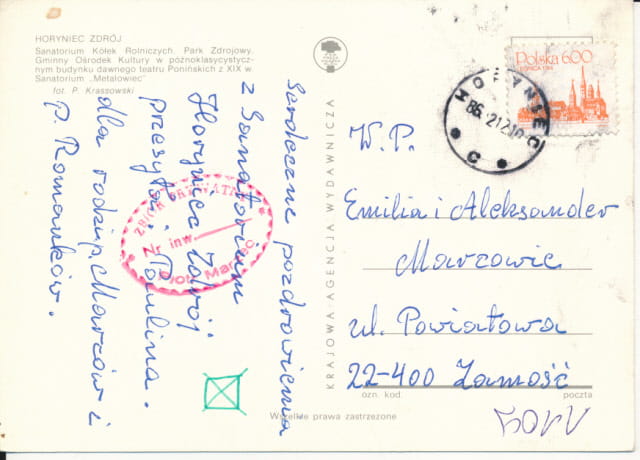 HORYNIEC ZDRÓJ
Sanatorium Kółek Rolniczych. Park Zdrojowy.
Gminny Ośrodek Kultury w późnoklasycystycz-
nym budynku dawnego teatru Ponińskich z XIX w.
Sanatorium „Metalowiec"
fot. P. Krassowski
Serdeczne pozdrowienia
z Sanatorium
Horyniec Zdrój
przesyła Paulina.
dla rodzin p. Marców i
p. Romanków.
ZBIÓR PRYWATNY
Nr inw.
Piotr Marzec
KRAJOWA AGENCJA WYDAWNICZA
Polska 6.00
HORYNIEC
86 -212
C
W.P.
Emilia i Aleksander
Marzowie
ul. Powiatowa
22-400 Zamość
ozn. kod. poczta
Wszelkie prawa zastrzeżone